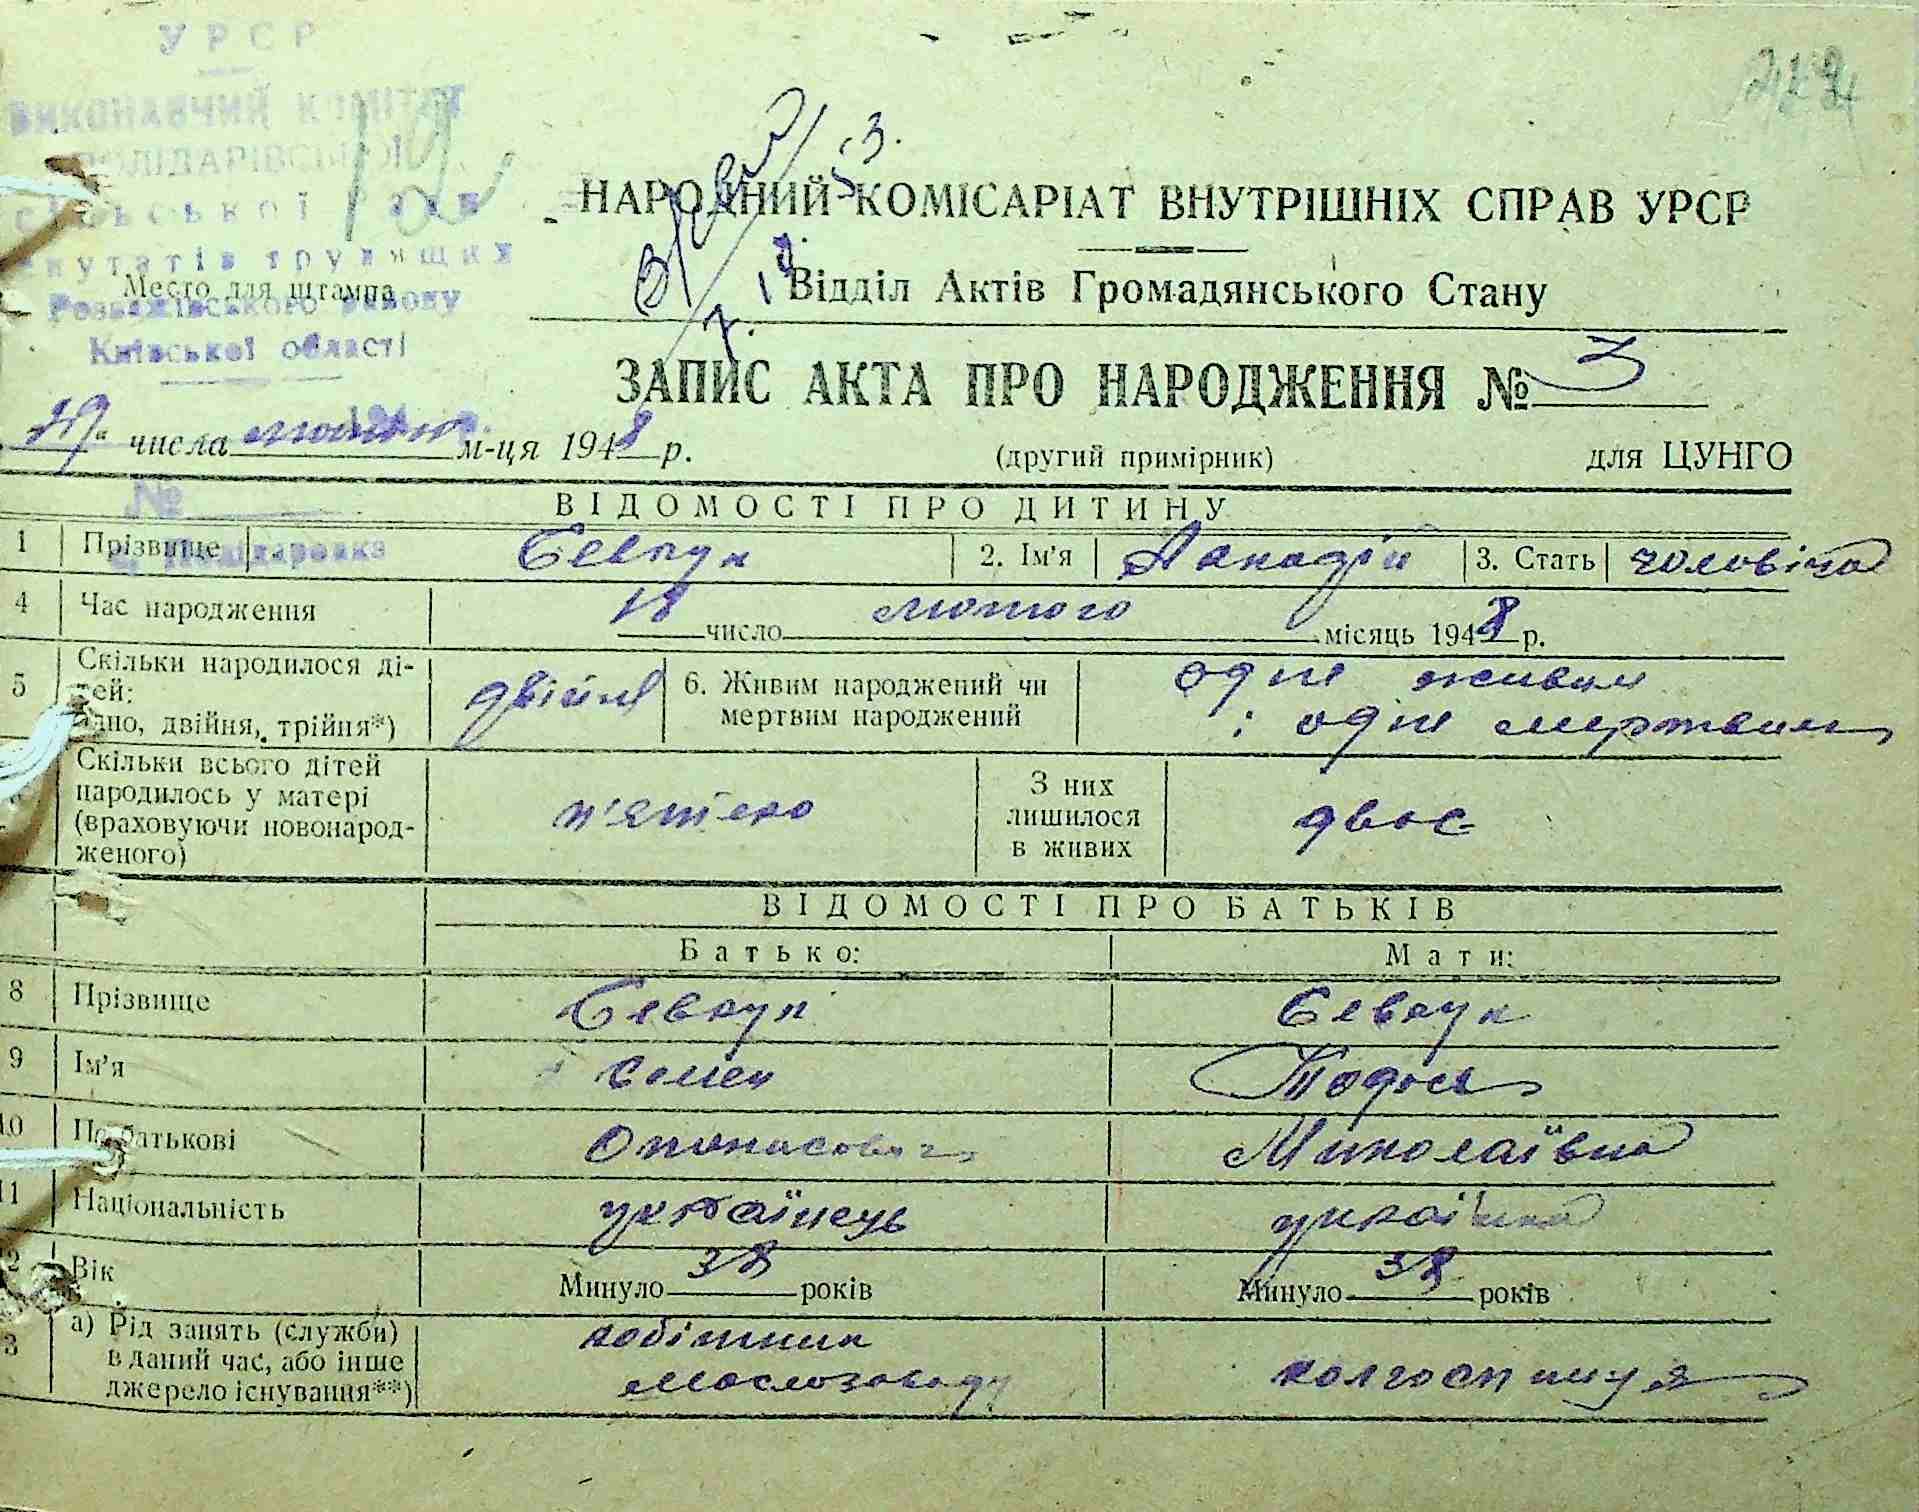 УРСР
ВИКОНАВЧИЙ КОМІТЕТ
ПОЛІДАРІВСЬКОЇ
сільської ради
депутатів трудящих
Розважівського району
Київської області
Место для штампа
12
5/3.
НАРОДНИЙ КОМІСАРІАТ ВНУТРІШНІХ СПРАВ УРСР
Відділ Актів Громадянського Стану
ЗАПИС АКТА ПРО НАРОДЖЕННЯ № 3
числа лютого м-ця 1948 р. (другий примірник) для ЦУНГО
№
ВІДОМОСТІ ПРО ДИТИНУ
1 Прізвище Севрук 2. Ім'я 3. Стать чоловіча
4 Час народження 18 число лютого місяць 1948 р.
5 Скільки народилося дітей: одно, двійня, трійня*) двійня 6. Живим народжений чи мертвим народжений одне живим
і одне мертвим
Скільки всього дітей народилось у матері (враховуючи новонародженого) п'ятеро З них лишилося в живих двоє
ВІДОМОСТІ ПРО БАТЬКІВ
Батько: Мати:
8 Прізвище Севрук Севрук
9 Ім'я Семен Тодося
10 По батькові Опанасович Миколаївна
11 Національність українець українка
12 Вік Минуло 38 років Минуло 38 років
13 а) Рід занять (служби) в даний час, або інше джерело існування**) робітник
маслозаводу колгоспниця